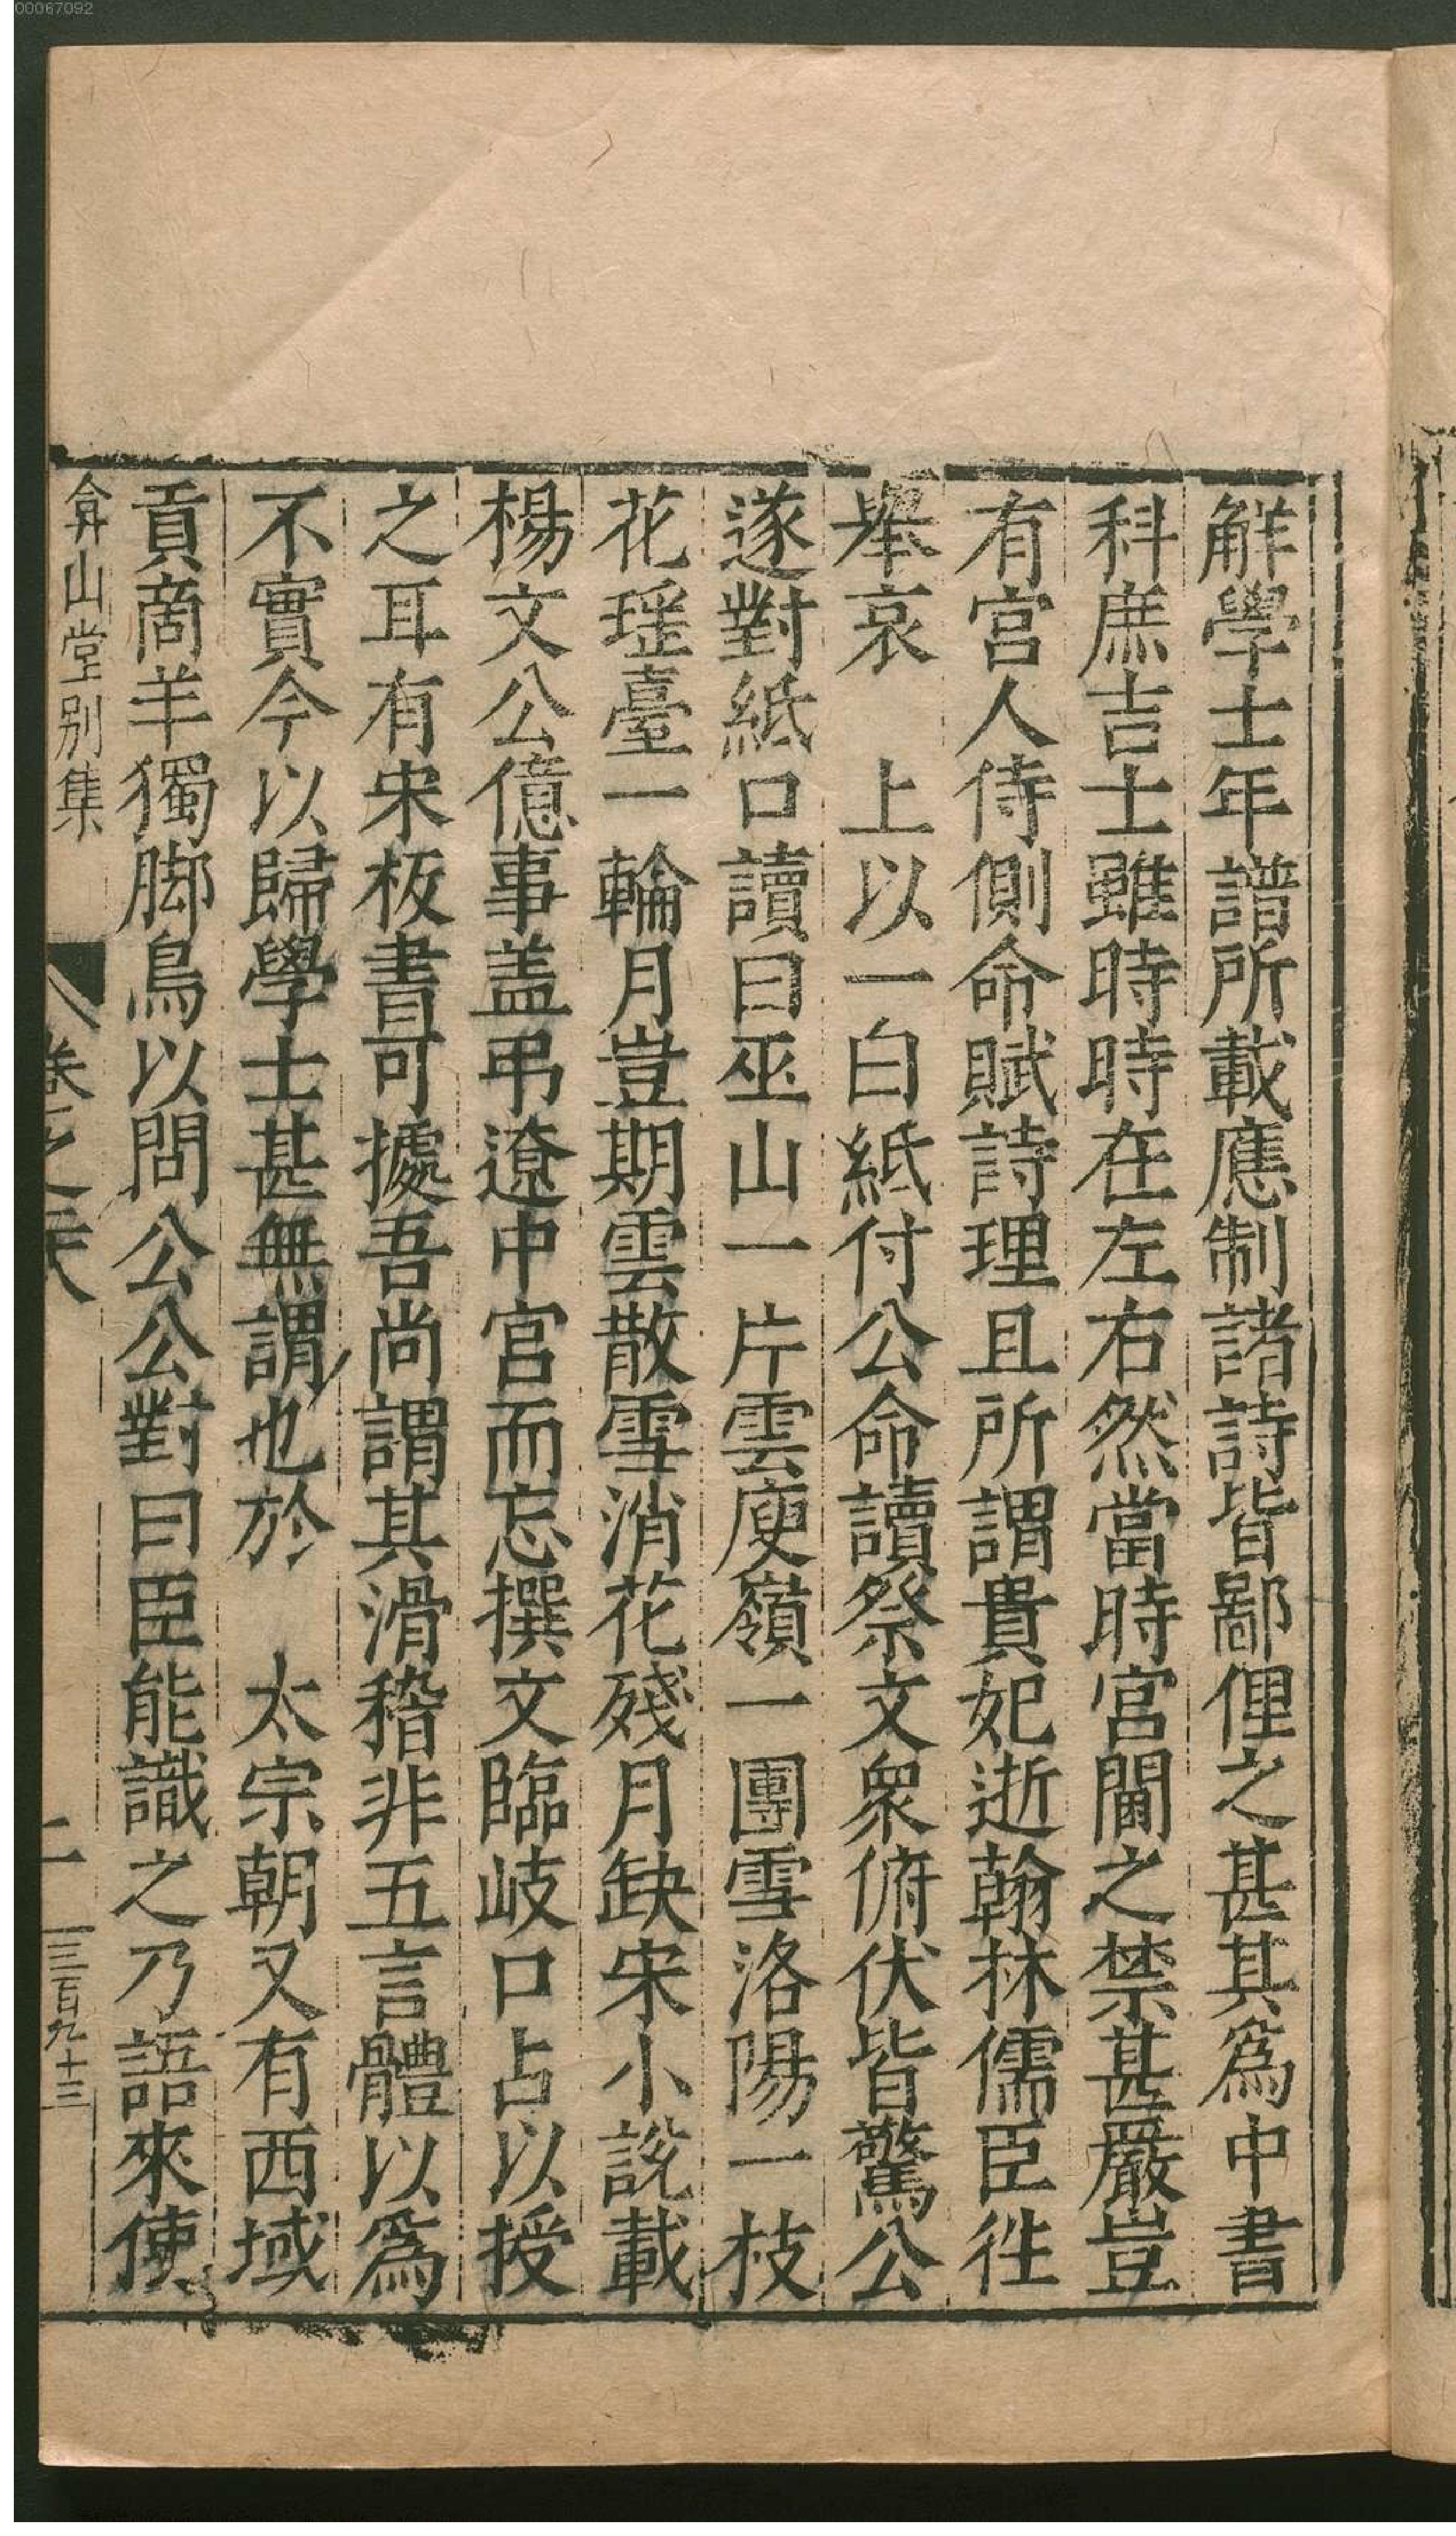 00067092
解學士年譜所載應制諸詩皆鄙俚之甚其爲中書
科庶吉士雖時時在左右然當時宮闈之禁甚嚴豈
有宫人侍側命賦詩理且所謂貴妃逝翰林儒臣徃
舉哀　上以一白紙付公命讀祭文衆俯伏皆驚公
遂對紙口讀曰巫山一片雲庾嶺一團雪洛陽一枝
花瑶臺一輪月豈期雲散雪消花殘月缺宋小說載
楊文公億事盖弔遼中宫而忘撰文臨歧口占以授
之耳有宋板書可據吾尚謂其滑稽非五言體以爲
不實今以歸學士甚無謂也於　太宗朝又有西域
貢啇羊獨脚鳥以問公公對曰臣能識之乃語來使
弇山堂别集
二
三百九十三